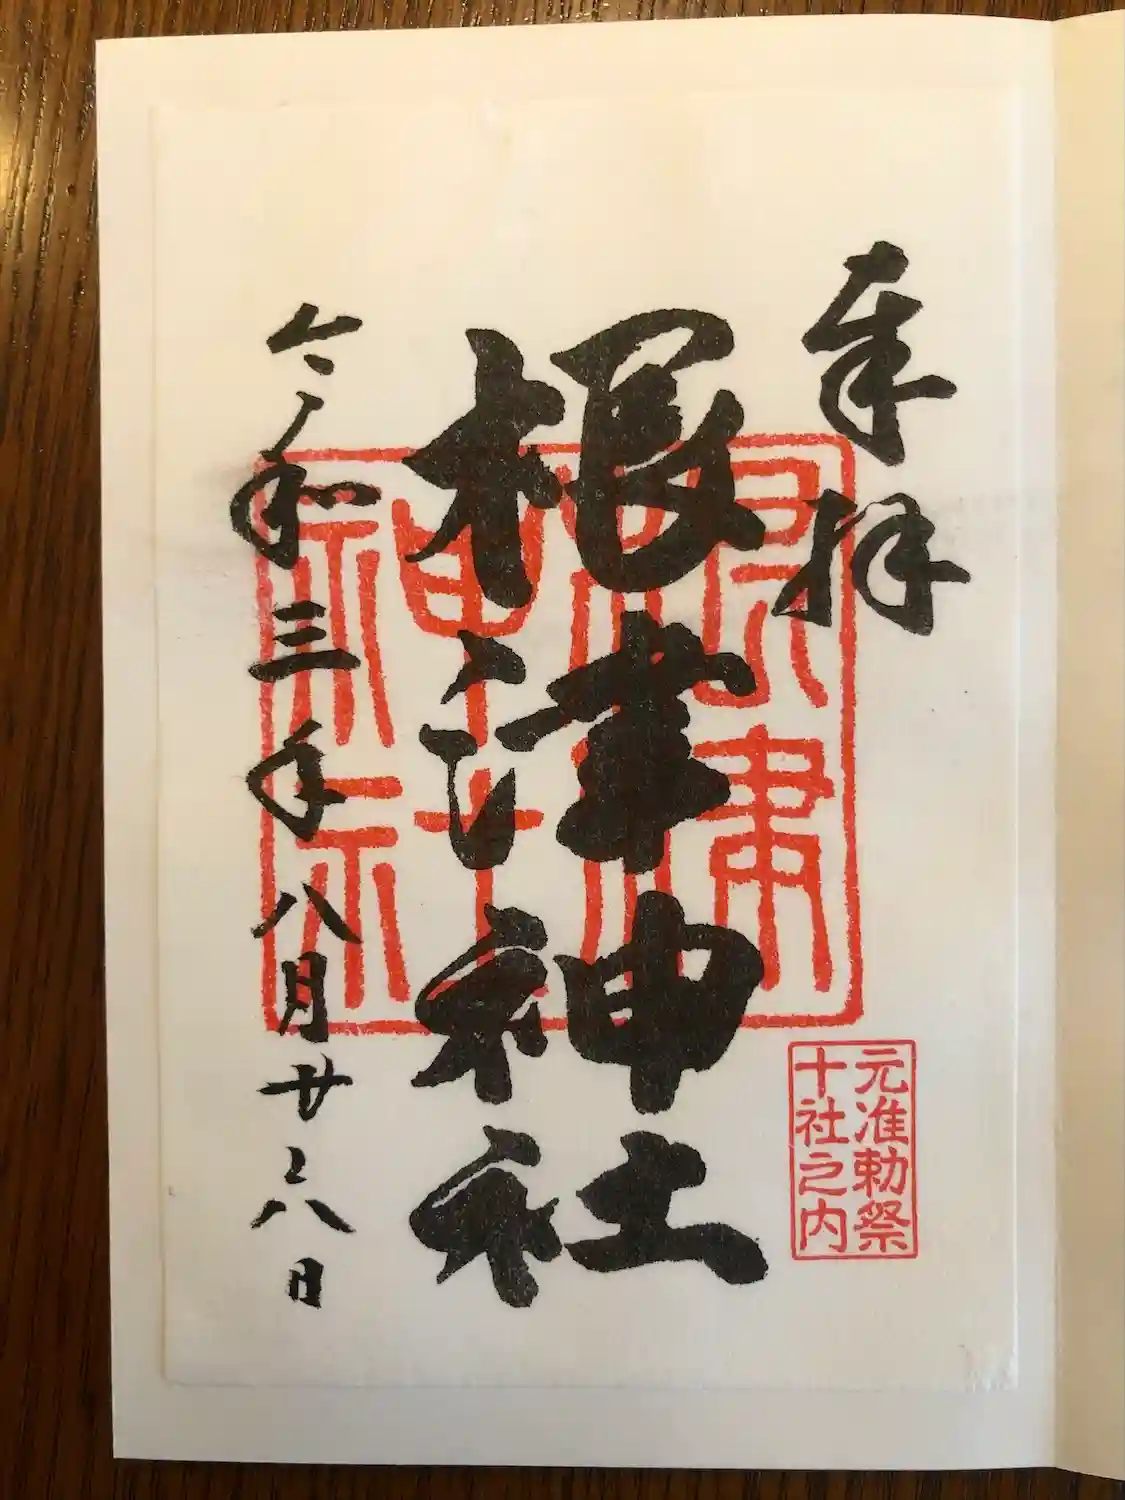 奉拝
元准勅祭
十社之内
根津神社
根津
神社
令和三年八月廿六日